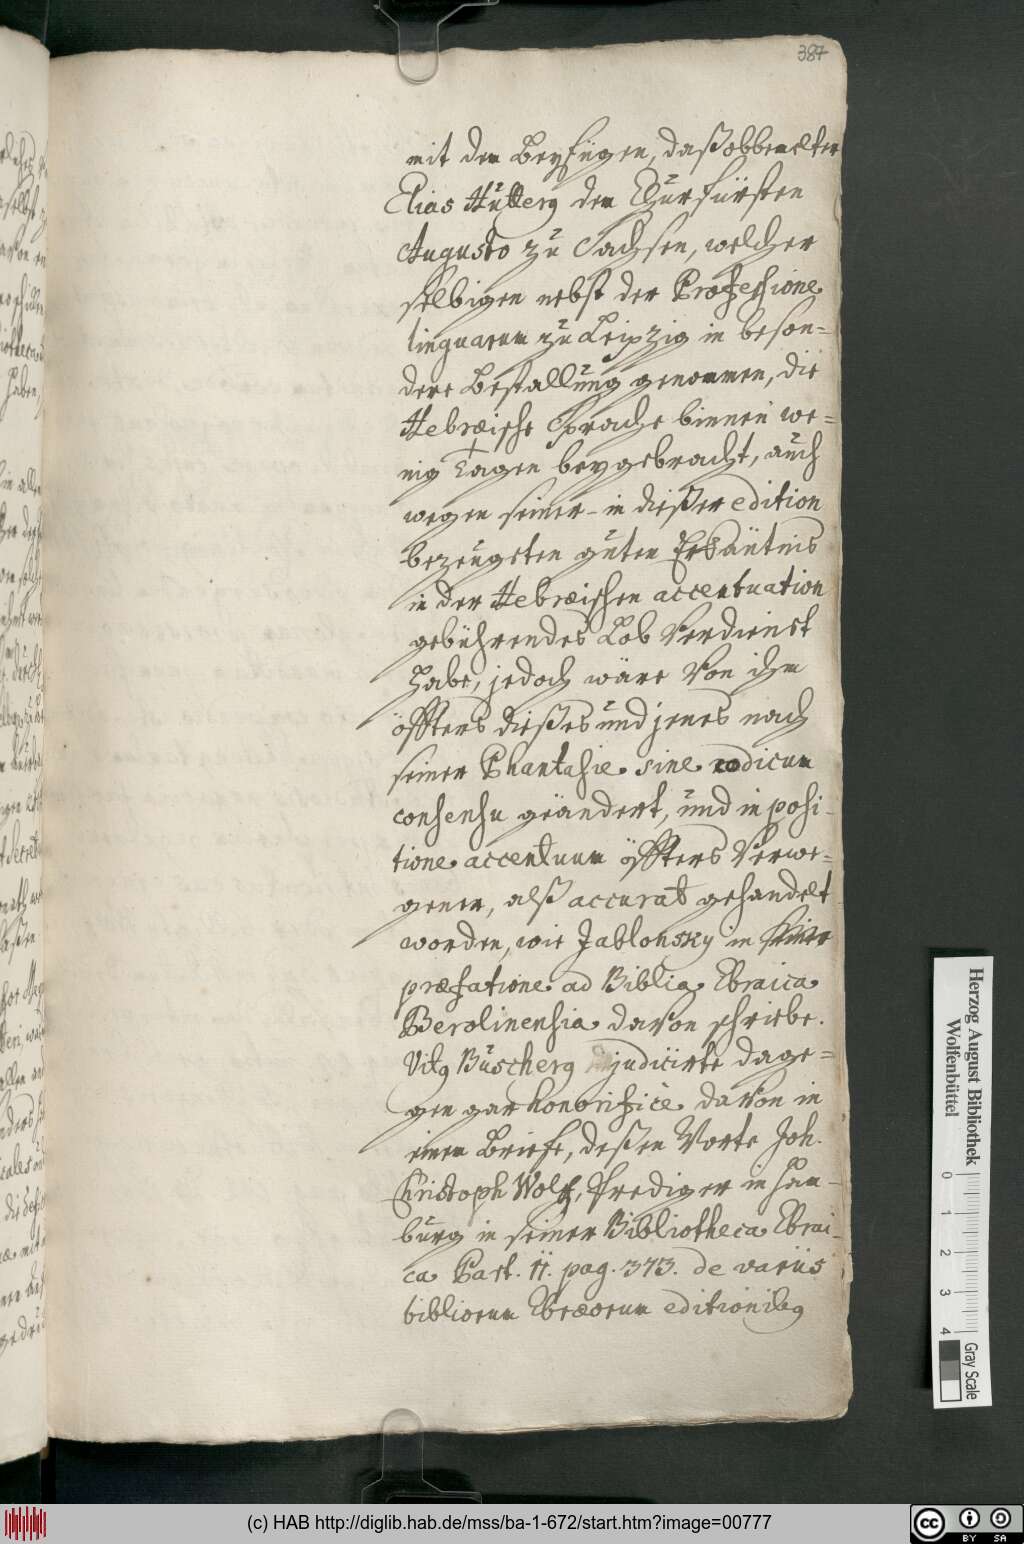 387
mit dem Beyfügen, daß obbemelter
Elias Hutterg dem Churfürsten
Augusto zu Sachsen, welcher
selbigen nebst der Professione
linguarum zu Leipzig in beson-
dere Bestallung genommen, die
Hebræische Sprache binnen we-
nig Tagen beygebracht, auch
wegen seiner in dießer edition
bezeugeten guten Erkäntnis
in der Hebræischen accentuation
gebührendes Lob Verdienet
habe, jedoch wäre Von ihm
öffters dießes und jenes nach
seiner Phantasie sine codicum
consensu geändert, und in posi-
tione accentuum öffters Verwe-
gener, alß accurat gehandelt
worden, wie Jablonsky in seiner
præfatione ad Biblia Ebraica
Berolinensia davon schriebe.
Vitg Büscherg judicirte dage-
gen gar honorificè davon in
einem Briefe, deßen Worte Joh.
Christoph Wolff, Prediger in Ham-
burg in seiner Bibliotheca Ebrai-
ca Part. II. pag. 373. de variis
bibliorum Ebræorum editionibg
Herzog August Bibliothek
Wolfenbüttel
0 1 2 3 4
Gray Scale
(c) HAB http://diglib.hab.de/mss/ba-1-672/start.htm?image=00777
cc BY SA